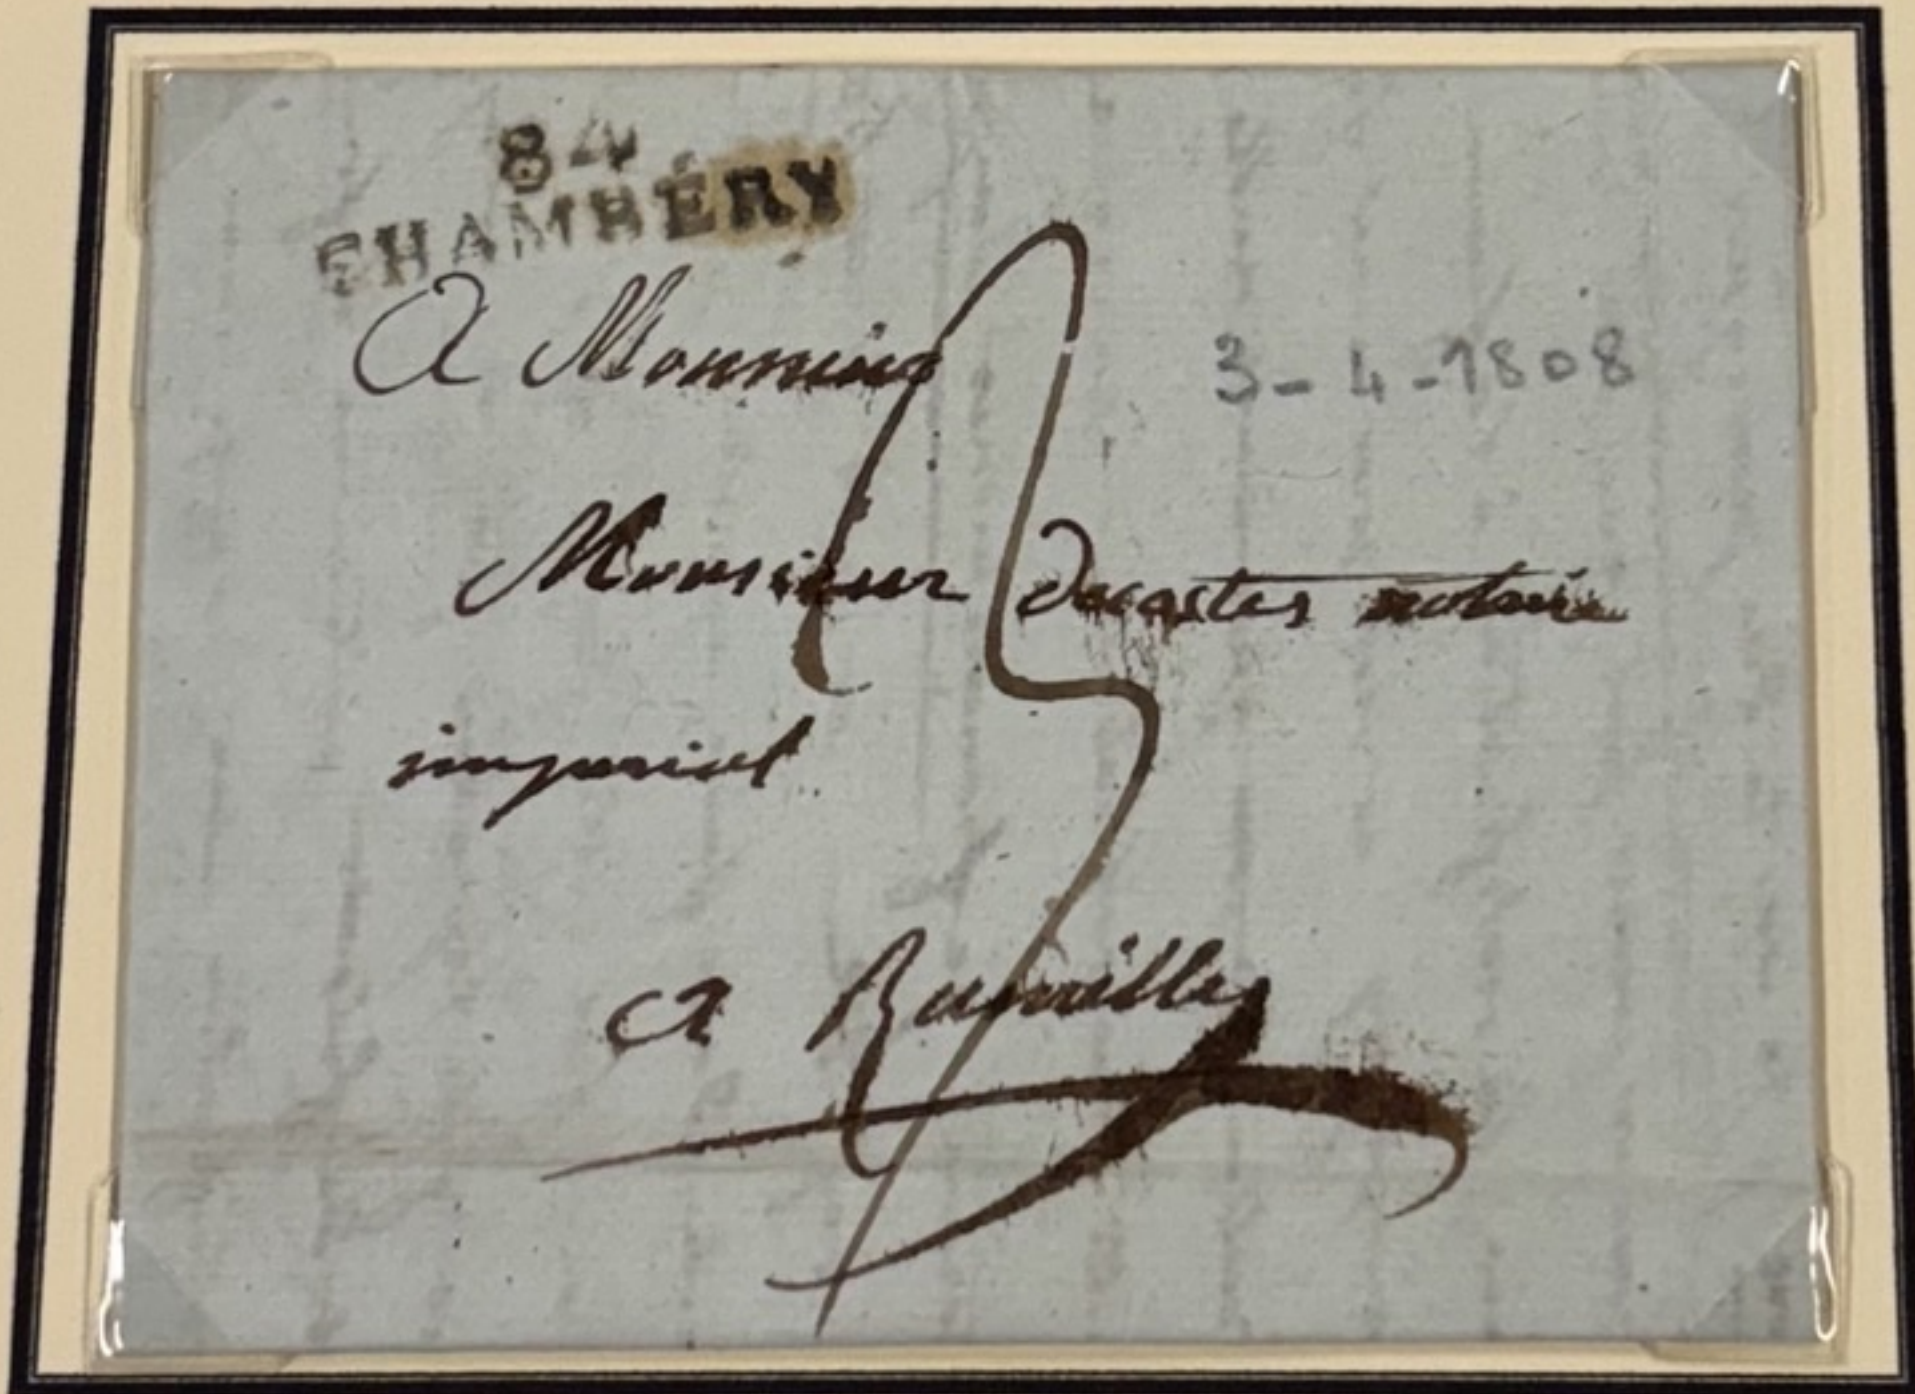 84
CHAMBÉRY
A Monsieur
3-4-1808
Monsieur Decostes notaire
imperial
a Rumilly